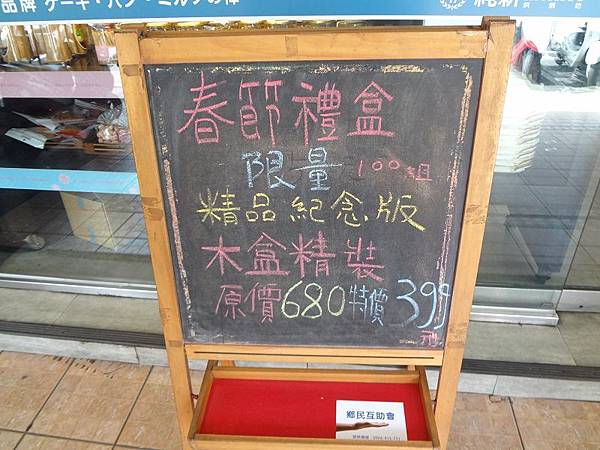 品牌 ケーキ・パン・ミルクの棒
維新
春節禮盒
限量 100組
精品紀念版
木盒精裝
原價680特價399
元
鄉民互助會